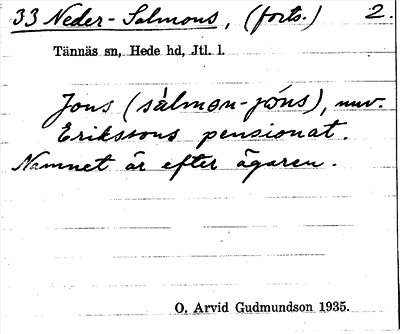 33 Neder-Salmons, (forts.) 2.
Tännäs sn, Hede hd, Jtl. l.
Jons (sàlmɷn-jóns), nuv.
Erikssons pensionat.
Namnet är efter ägaren.
O. Arvid Gudmundson 1935.